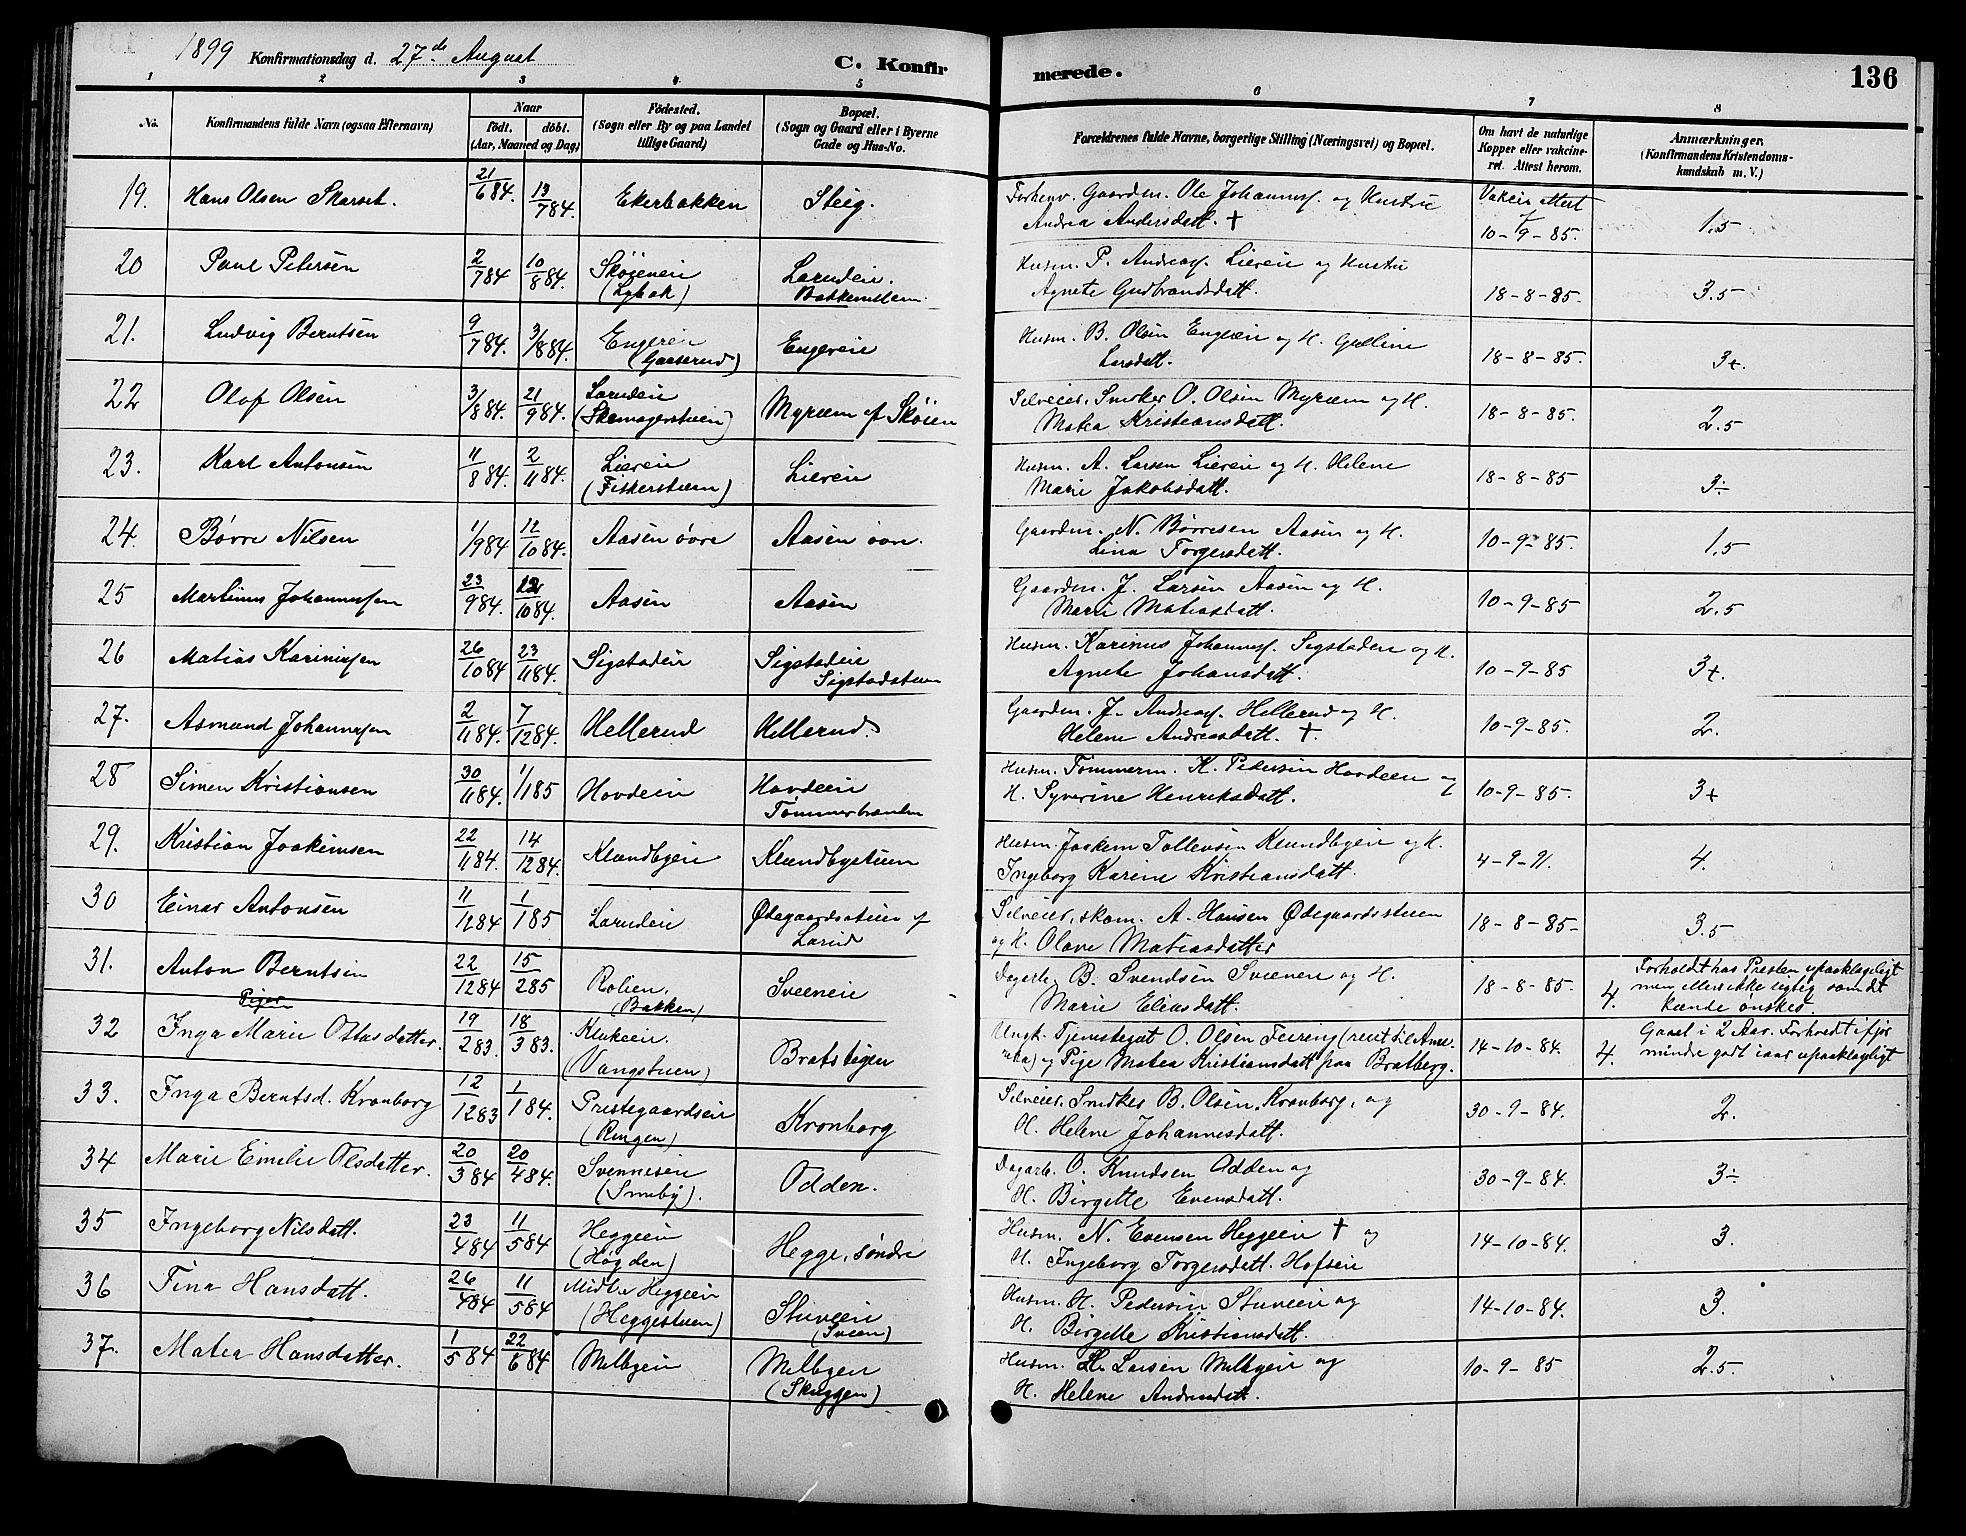 1899 Konfirmationsdag d. 27de August C. Konfirmerede. 136
1 2 3 4 5 6 7 8
No. Konfirmandens fulde Navn (ogsaa Efternavn) Naar födt. döbt. (Aar, Maaned og Dag) Födested. (Sogn eller By og paa Landet tillige Gaard) Bopæl. (Sogn og Gaard eller i Byerne Gade og Hus-No. Forældrenes fulde Navne, borgerlige Stilling (Næringsvei) og Bopæl. Om havt de naturlige Kopper eller vakcineret. Attest herom. Anmærkninger, (Konfirmandens Kristendomskundskab m. V.)
19. Hans Olsen Skarset. 21/6 84. 13/7 84. Ekerbakken Steig. Forhenv. Gaardm. Ole Johannesf. og Hustru Vakcin attest
Andrea Andersdatt. † 10-9-85. 1.5
20 Paul Petersen 2/7 84 10/8 84. Skøieneie Larudeie. Husm. P. Andreasf. Lieeie og Hustru
(Lybak) Bakkemellem. Agnete Gudbrandsdatt. 18-8-85. 3.5
21. Ludvig Berntsen 9/7 84. 3/8 84. Engereie Engereie Husm. B. Olsen Engeeie og H. Gulline
(Gaaserud) Larsdatt. 18-8-85. 3+.
22 Olaf Olsen 3/8 84. 21/9 84. Larudeie Myræen af Skøien Selveier, Snekker O. Olsen Myræen og H.
(Skomagerstuen) Matea Kristiansdatt. 18-8-85. 2.5
23. Karl Antonsen 11/8 84. 2/11 84. Liereie Liereie Husm. A. Larsen Liereie og H. Helene
(Fiskerstuen) Marie Jakobsdatt. 18-8-85 3÷
24. Børre Nilsen 1/9 84 12/10 84. Aasen övre Aasen övre. Gaardm. N. Børresen Aasen og H.
Lina Torgersdatt. 10-9-85. 1.5
25 Martinus Johannesen 23/9 84. 12/10 84. Aasen Aasen Gaardm. J. Larsen Aasen og H.
Marie Matiasdatt. 10-9-85 2.5
26 Matias Karinusen 26/10 84 23/11 84. Sigstadeie Sigstadeie Husm. Karinus Johannesf. Sigstadeie og H.
Sigstadstuen Agnete Johansdatt. 10-9-85 3+.
27. Asmund Johannesen 2/11 84. 7/12 84. Hellerud Hellerud. Gaardm. J. Andreasf. Hellerud og H.
Helene Andreasdatt. †. 10-9-85. 2.
28 Simen Kristiansen 30/11 84. 1/1 85 Hovdeie Hovdeie Husm. Tømmerm. K. Pedersen Hovdeeie og
Tømmerbraaten H. Syverine Henriksdatt. 10-9-85. 3+
29. Kristian Joakimsen 22/11 84 14/12 84. Klundbyeie Klundbystuen Husm. Joakim Tollevsen Klundbyeie og H.
Ingeborg Karine Kristiansdatt. 4-9-91. 4.
30 Einar Antonsen 11/12 84 1/1 85 Larudeie Ødegaardsstuen af Selveier, skom. A. Hansen Ødegaardsstuen
Larud og H. Olave Matiasdatter 18-8-85- 3.5
31. Anton Berntsen 22/12 84 15/2 85 Rolien. Sveeneie Dagarb. B. Svendsen Sveeneie og H. Forholdt hos Presten upaaklageligt
(Bakken) Marie Eliasdatt. 18-8-85. 4. men ellers ikke ligtig som det kunde ønskes.
Piger
32 Inga Marie Ottosdatter. 19/2 83. 18/3 83. Klukeeie. Bratstigen Ungk. Tjenstegut O. Olsen Feiring (reist til Ame- Gaael i 2 Aar. Forholdt ifjor
(Vangstuen) rika) og Pige Matea Kristiansdatt. paa Bratberg. 14-10-84. 4. mindre godt iaar upaaklageligt
33. Inga Berntsd. Kronborg 12/12 83 1/1 84. Prestegaardseie Kronborg Selveier. Snedker B. Olsen Kronborg, og
(Ringen) H. Helene Johannesdatt. 30-9-84. 2.
34 Marie Emelie Olsdatter. 20/3 84 20/4 84. Svenneseie Odden. Dagarb. O. Knudsen Odden og
(Smeby). H. Birgette Evensdatt. 30-9-84. 3÷
35 Ingeborg Nilsdatt. 23/4 84 11/5 84 Heggeeie Hegge, søndre Husm. N. Evensen Heggeeie † og
(Høgden) H. Ingeborg Torgersdatt. Hofseie 14-10-84. 3.
36 Tina Hansdatt. 26/4 84 11/5 84 Midtre Heggeeie Stuveeie Husm. H. Pedersen Stuveeie og
(Heggestuen) (Sveen) H. Birgette Kristiansdatt. 14-10-84. 3.
37. Matea Hansdatter. 1/5 84 22/6 84 Melbyeie Melbyeie Husm. H. Larsen Melbyeie og
(Skuggen) H. Helene Andreasdatt. 10-9-85 2.5